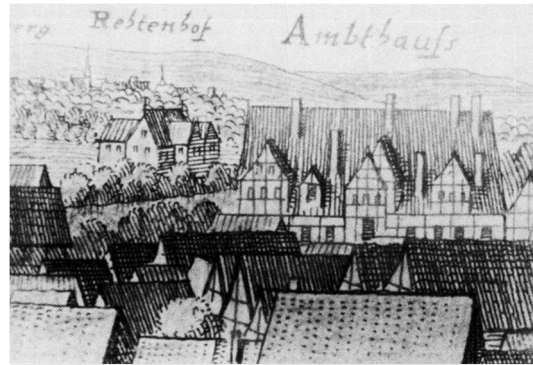 erg Rehtenhof Ambthauſs